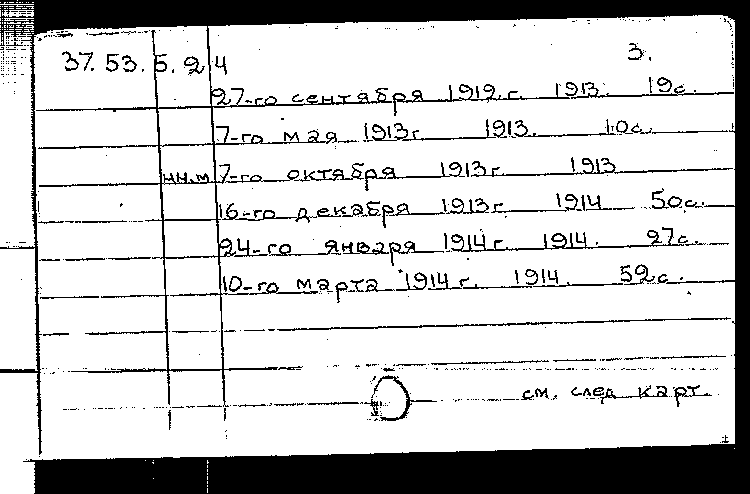 37.53.5.24 3.
27-го сентября 1912.г. 1913. 19с.
7-го мая 1913г 1913. 10с.
нн.м 7-го октября 1913г. 1913
16-го декабря 1913г 1914 50с.
24-го января 1914г. 1914. 27с.
10-го марта 1914г. 1914. 52с.
см. след карт.